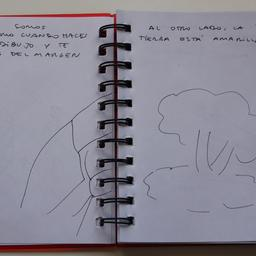 SOMOS
COMO CUANDO HACES
DIBUJO Y TE
DEL MARGEN
AL OTRO LADO, LA
TIERRA ESTÁ AMARILLA